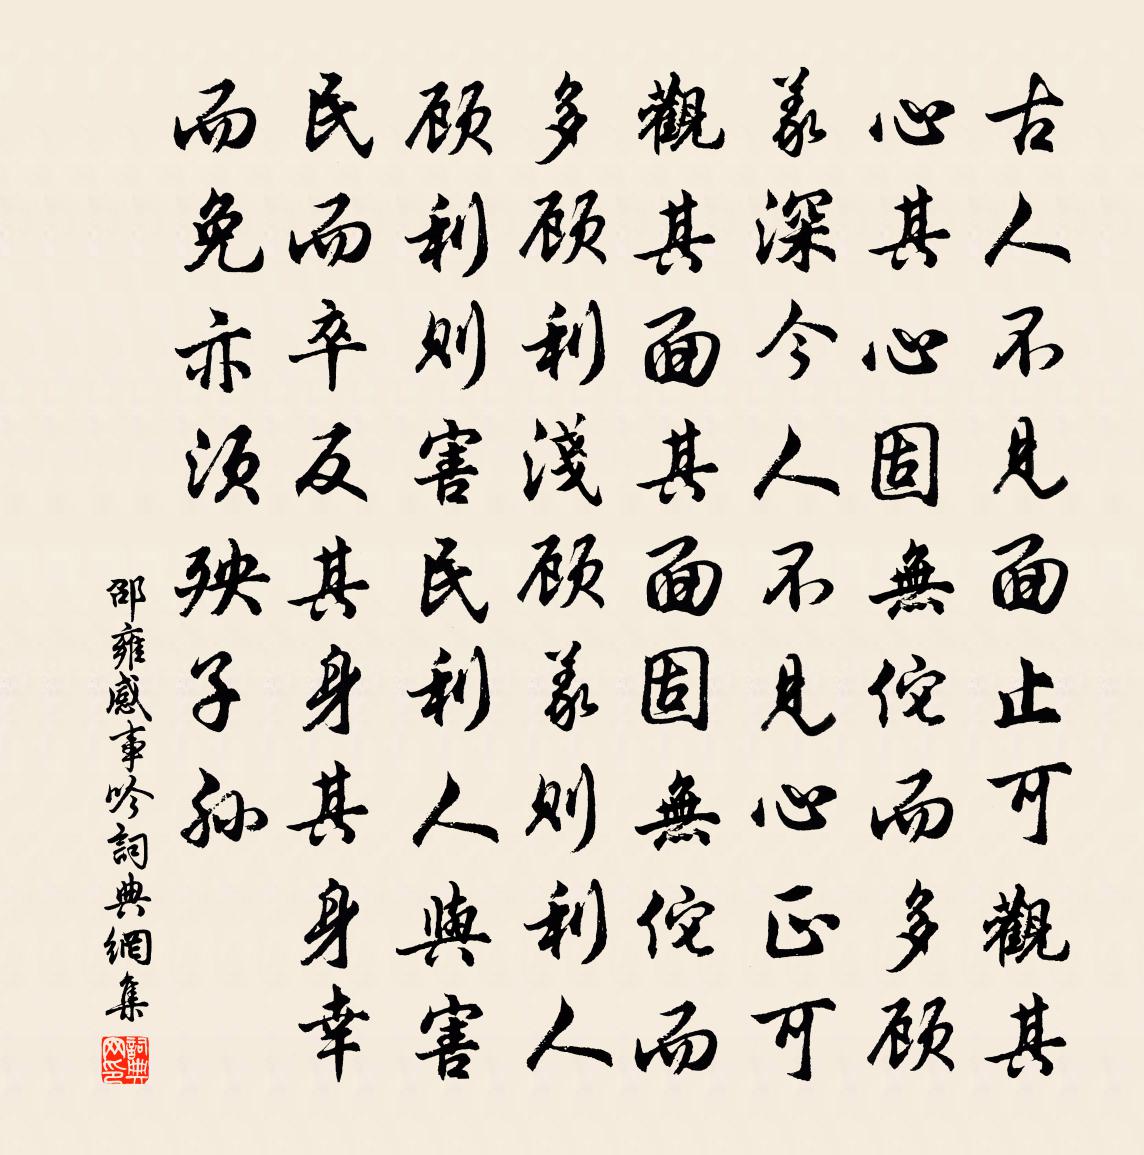 古人不見面止可觀其
心其心固無佗而多顧
義深今人不見心正可
觀其面其面固無佗而
多顧利淺顧義則利人
顧利則害民利人與害
民而卒反其身其身幸
而免亦須殃子孫
邵雍感事吟詞典網集
詞典网印